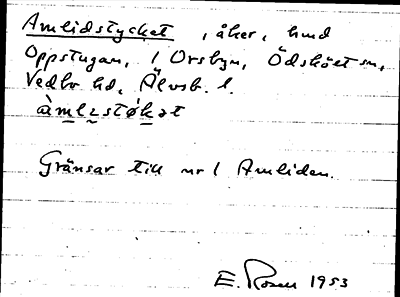 Amlidstycket, åker, hmd
Oppstugan, 1 Orsbyn, Ödskölt sn,
Vedbo hd, Älvsb. l.
àmlɩstø̀kət
Gränsar till nr 1 Amliden.
E. Rosen 1953